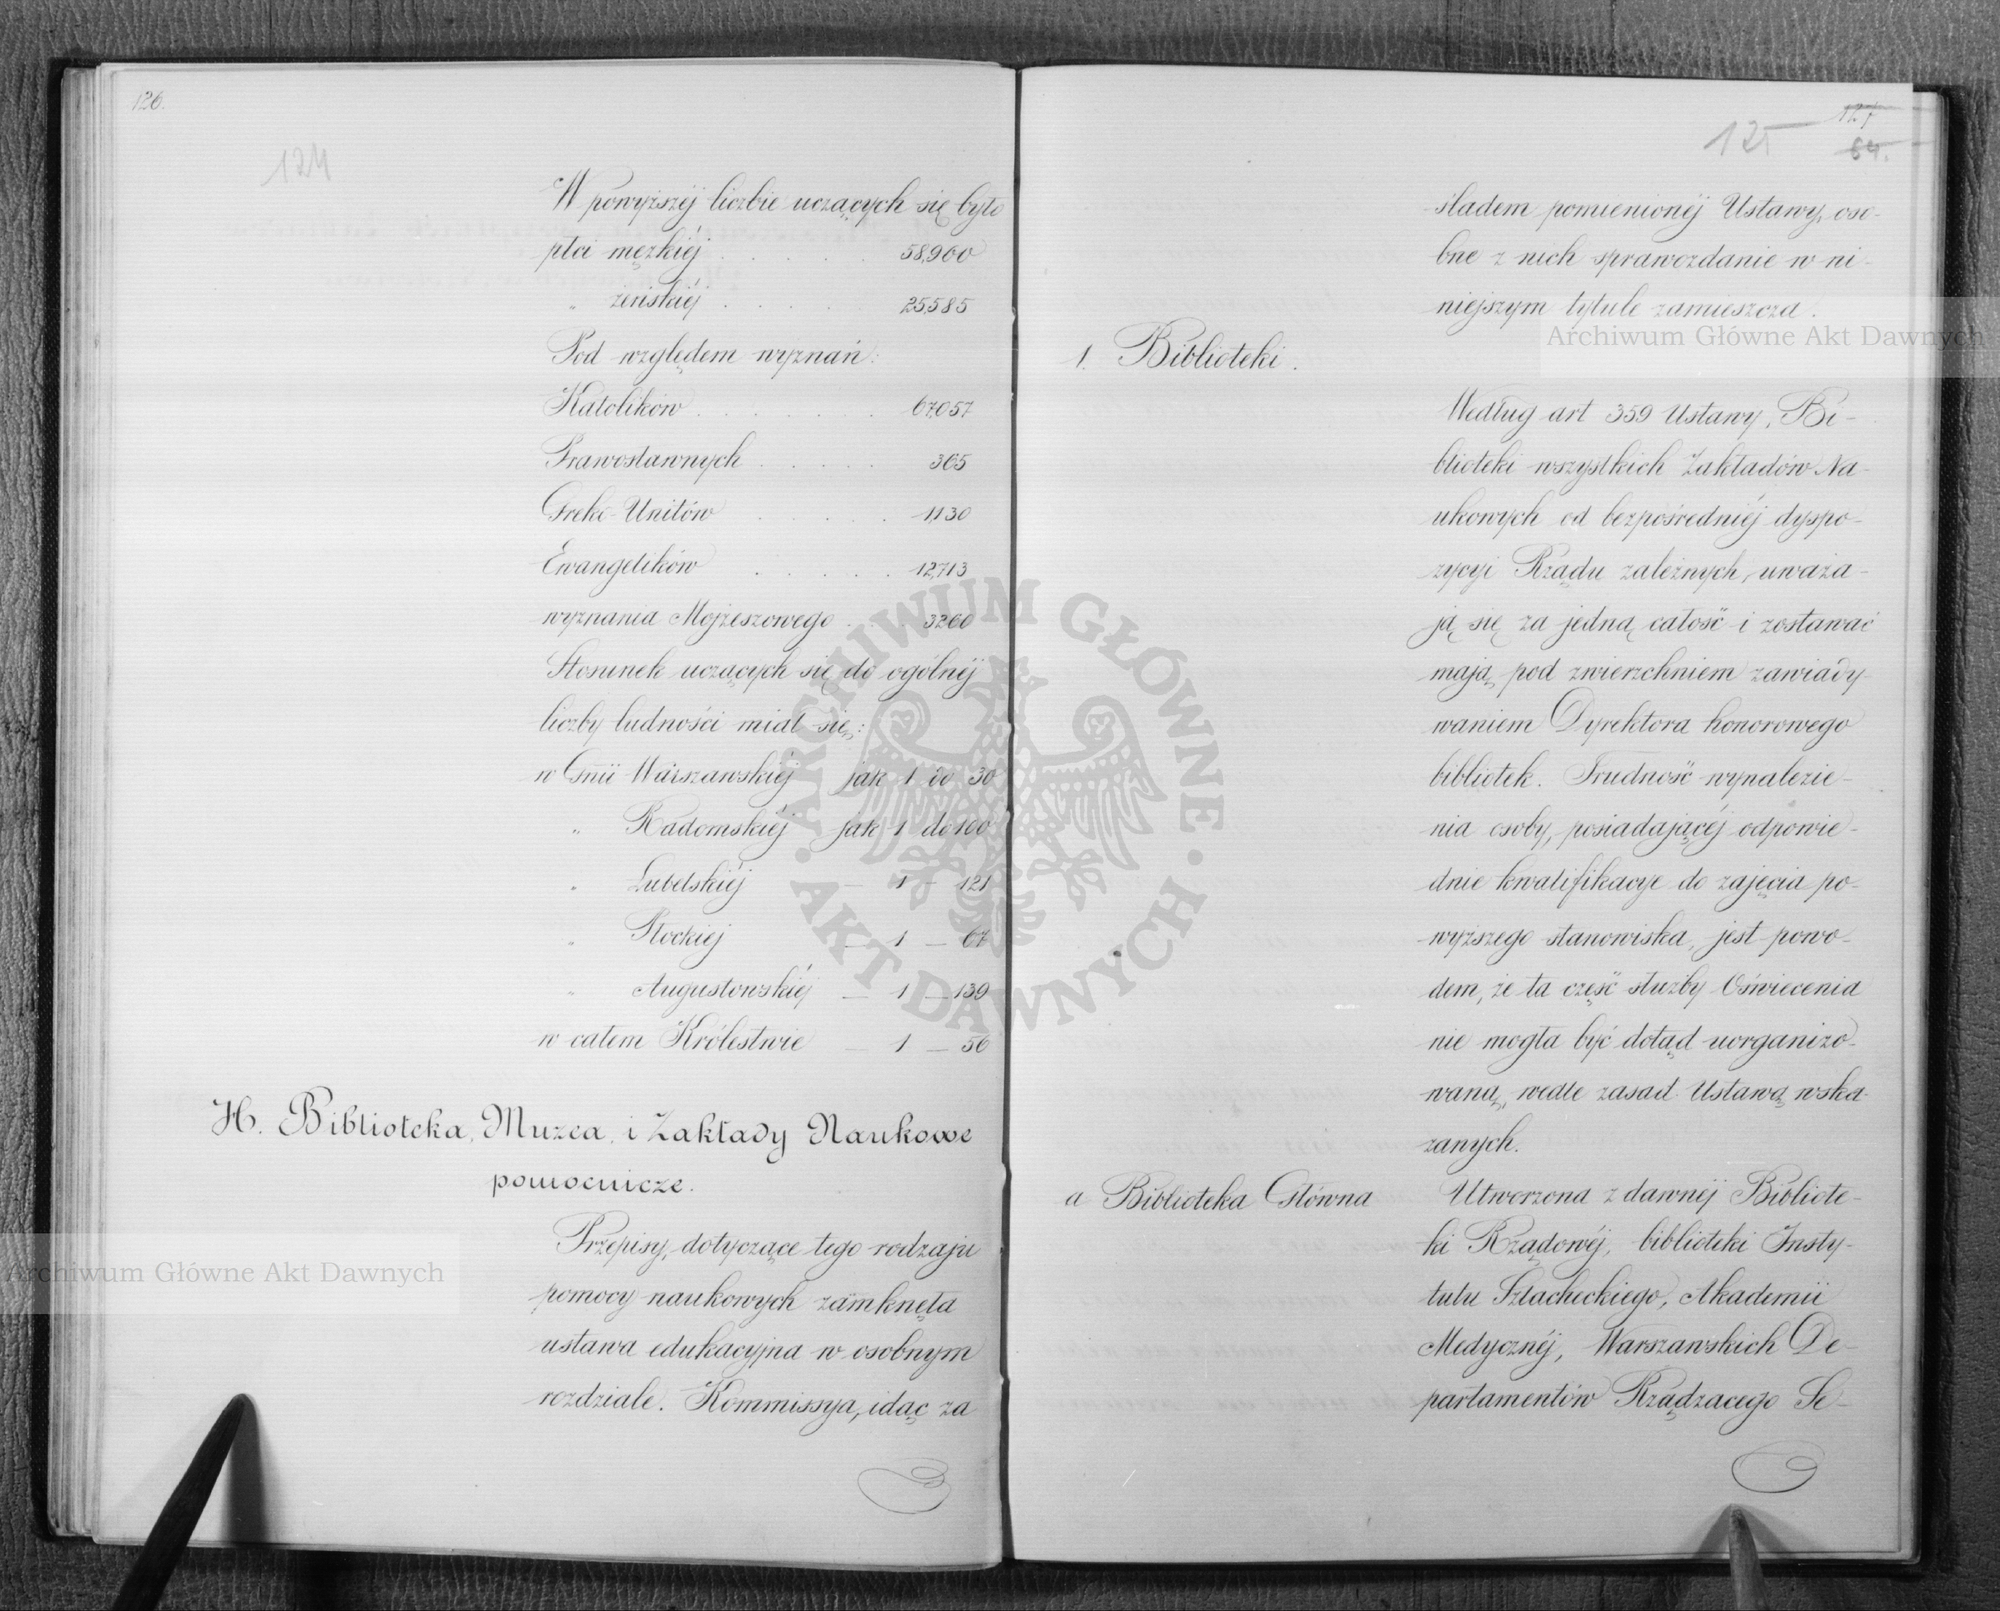 126.
124
W powyższéj liczbie uczących się było
płci męzkiéj . . . . . 58,900
" żeńskiéj . . . . 25,585
Pod względem wyznań:
Katolików . . . . . . . 67,057
Prawosławnych . . . . . 365
Greko-Unitów . . . . . 1,130
Ewangelików . . . . . 12,713
wyznania Mojżeszowego . . . 3260
Stosunek uczących się do ogólnéj
liczby ludności miał się:
w Gnii Warszawskiéj jak 1 do 30
" Radomskiéj jak 1 do 100
" Lubelskiéj — 1 — 121
" Płockiej — 1 — 67
" Augustowskiéj — 1 — 139
w całem Królestwie — 1 — 56
H. Biblioteka, Muzea, i Zakłady Naukowe
pomocnicze.
Przepisy, dotyczące tego rodzaju
pomocy naukowych zamknęła
ustawa edukacyjna w osobnym
rozdziale. Kommissya, idąc za
125
127
64.
śladem pomienionéj Ustawy, oso-
bne z nich sprawozdanie w ni-
niejszym tytule zamieszcza.
1. Biblioteki.
Według art 359 Ustawy, Bi-
blioteki wszystkich Zakładów Na-
ukowych od bezpośredniéj dyspo-
zycyi Rządu zależnych, uważa-
ją się za jedną całość i zostawać
mają pod zwierzchniem zawiady-
waniem Dyrektora honorowego
bibliotek. Trudność wynalezie-
nia osoby, posiadającéj odpowie-
dnie kwalifikacye do zajęcia po-
wyższego stanowiska, jest powo-
dem, że ta część służby Oświecenia
nie mogła być dotąd uorganizo-
waną, wedle zasad Ustawą wska-
zanych.
a Biblioteka Główna
Utworzona z dawnéj Bibliote-
ki Rządowéj, biblioteki Insty-
tutu Szlacheckiego, Akademii
Medycznéj, Warszawskich De-
partamentów Rządzącego Se-
Archiwum Główne Akt Dawnych
Archiwum Główne Akt Dawnych
ARCHIWUM GŁÓWNE · AKT DAWNYCH ·